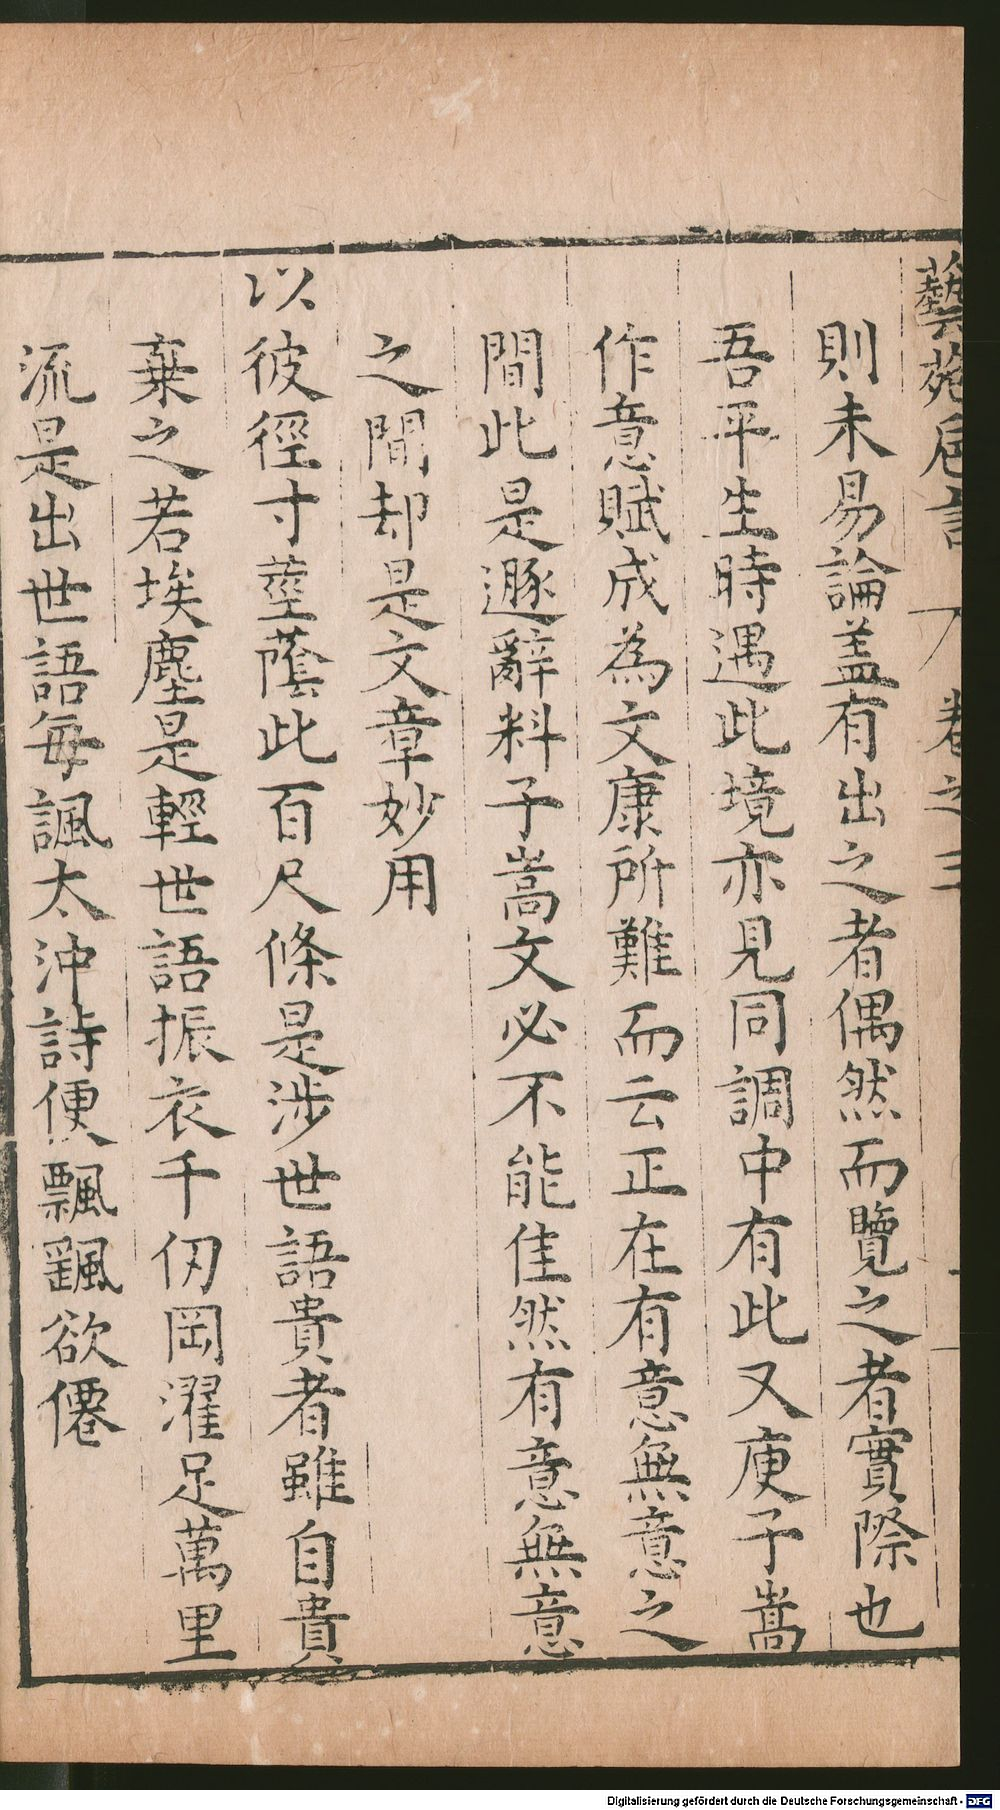 藝苑卮言 卷之三
則未易論盖有出之者偶然而覽之者實際也
吾平生時遇此境亦見同調中有此又庾子嵩
作意賦成為文康所難而云正在有意無意之
間此是遯辭料子嵩文必不能佳然有意無意
之間却是文章妙用
以彼徑寸莖蔭此百尺條是涉世語貴者雖自貴
棄之若埃塵是輕世語振衣千仞岡濯足萬里
流是出世語每諷太沖詩便飄颻欲僊
Digitalisierung gefördert durch die Deutsche Forschungsgemeinschaft - DFG